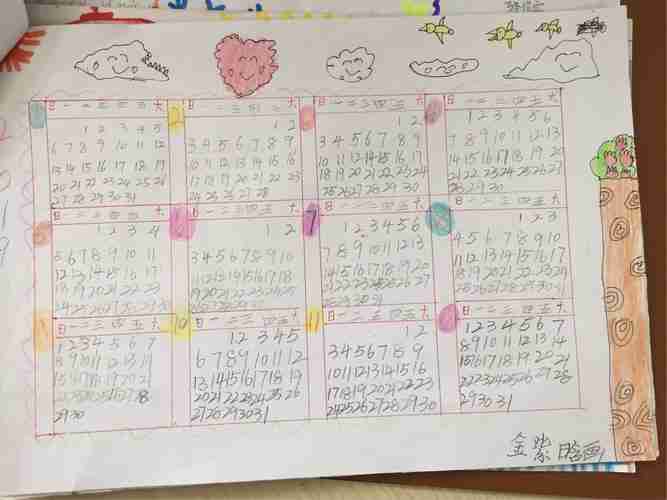 日一二三四五六
1 2 3 4 5
6 7 8 9 10 11 12
13 14 15 16 17 18 19
20 21 22 23 24 25 26
27 28 29 30 31
2
1 2
3 4 5 6 7 8 9
10 11 12 13 14 15 16
17 18 19 20 21 22 23
24 25 26 27 28
日一二三四五六
1 2
3 4 5 6 7 8 9
10 11 12 14 15 16 17
18 19 20 21 22 23 24
25 26 27 28 29 30
日一二三四五六
1 2 3 4 5 6
7 8 9 10 11 12 13
14 15 16 17 18 19 20
21 22 23 24 25 26 27
28 29 30
日一二三四五六
1 2 3 4
5 6 7 8 9 10 11
12 13 14 15 16 17
日一二三四五六
1 2
3 4 5 6 7 8 9 10
11 12 13 14 15 16 17 18
19 20 21 22 23 24 25
7
日一二三四五六
1 2 3 4 5 6
7 8 9 10 11 12 13
14 15 16 17 18 19 20
21 22 23 24 25 26 27
28 29 30 31
日一二三四五六
1 2 3
4 5 6 7 8 9 10
11 12 13 14 15 16 17
18 19 20 21 22 23
日一二三四五六
1 2 3 4 5 6 7
8 9 10 11 12 13 14
15 16 17 18 19 20 21
29 30
10
日一二三四五六
1 2 3 4 5
6 7 8 9 10 11 12
13 14 15 16 17 18 19
20 21 22 23 24 25 26
27 28 29 30 31
11
日一二三四五六
1 2
3 4 5 6 7 8 9
10 11 12 13 14 15 16
17 18 19 20 21 22 23
24 25 26 27 28 29 30
日一二三四五六
1 2 3 4 5 6 7
8 9 10 11 12 13 14
15 16 17 18 19 20 21
22 23 24 25 26 27 28
29 30 31
金紫晗画